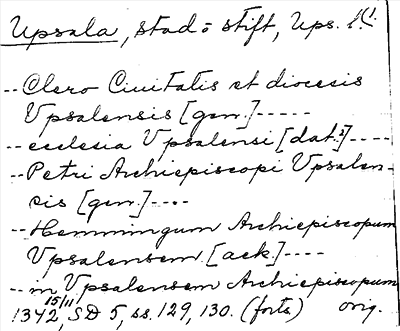 Upsala, stad o stift, Ups. l. (1.
-- Clero Ciuitatis et diocesis
Vpsalensis [gen.] -----
-- ecclesia Vpsalensi [dat.?] ----
-- Petri Archiepiscopi Vpsalen-
sis [gen.] ----
-- Hemmingum Archiepiscopum
Vpsalensem [ack.] ----
-- in Vpsalensem Archiepiscopum
1342 15/11, SD 5, ss. 129, 130. (forts) orig.